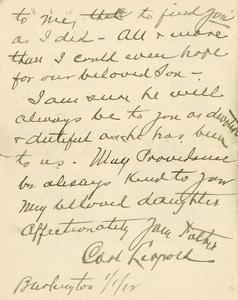 to me, that to find you
as I did - All & more
than I could even hope
for our beloved Son -
I am sure he will
always be to you as devoted
& dutiful as he has been
to us. May Providence
be always Kind to you
my beloved daughter
Affectionately your Father
Carl Leopold
Burlington 1/1/12